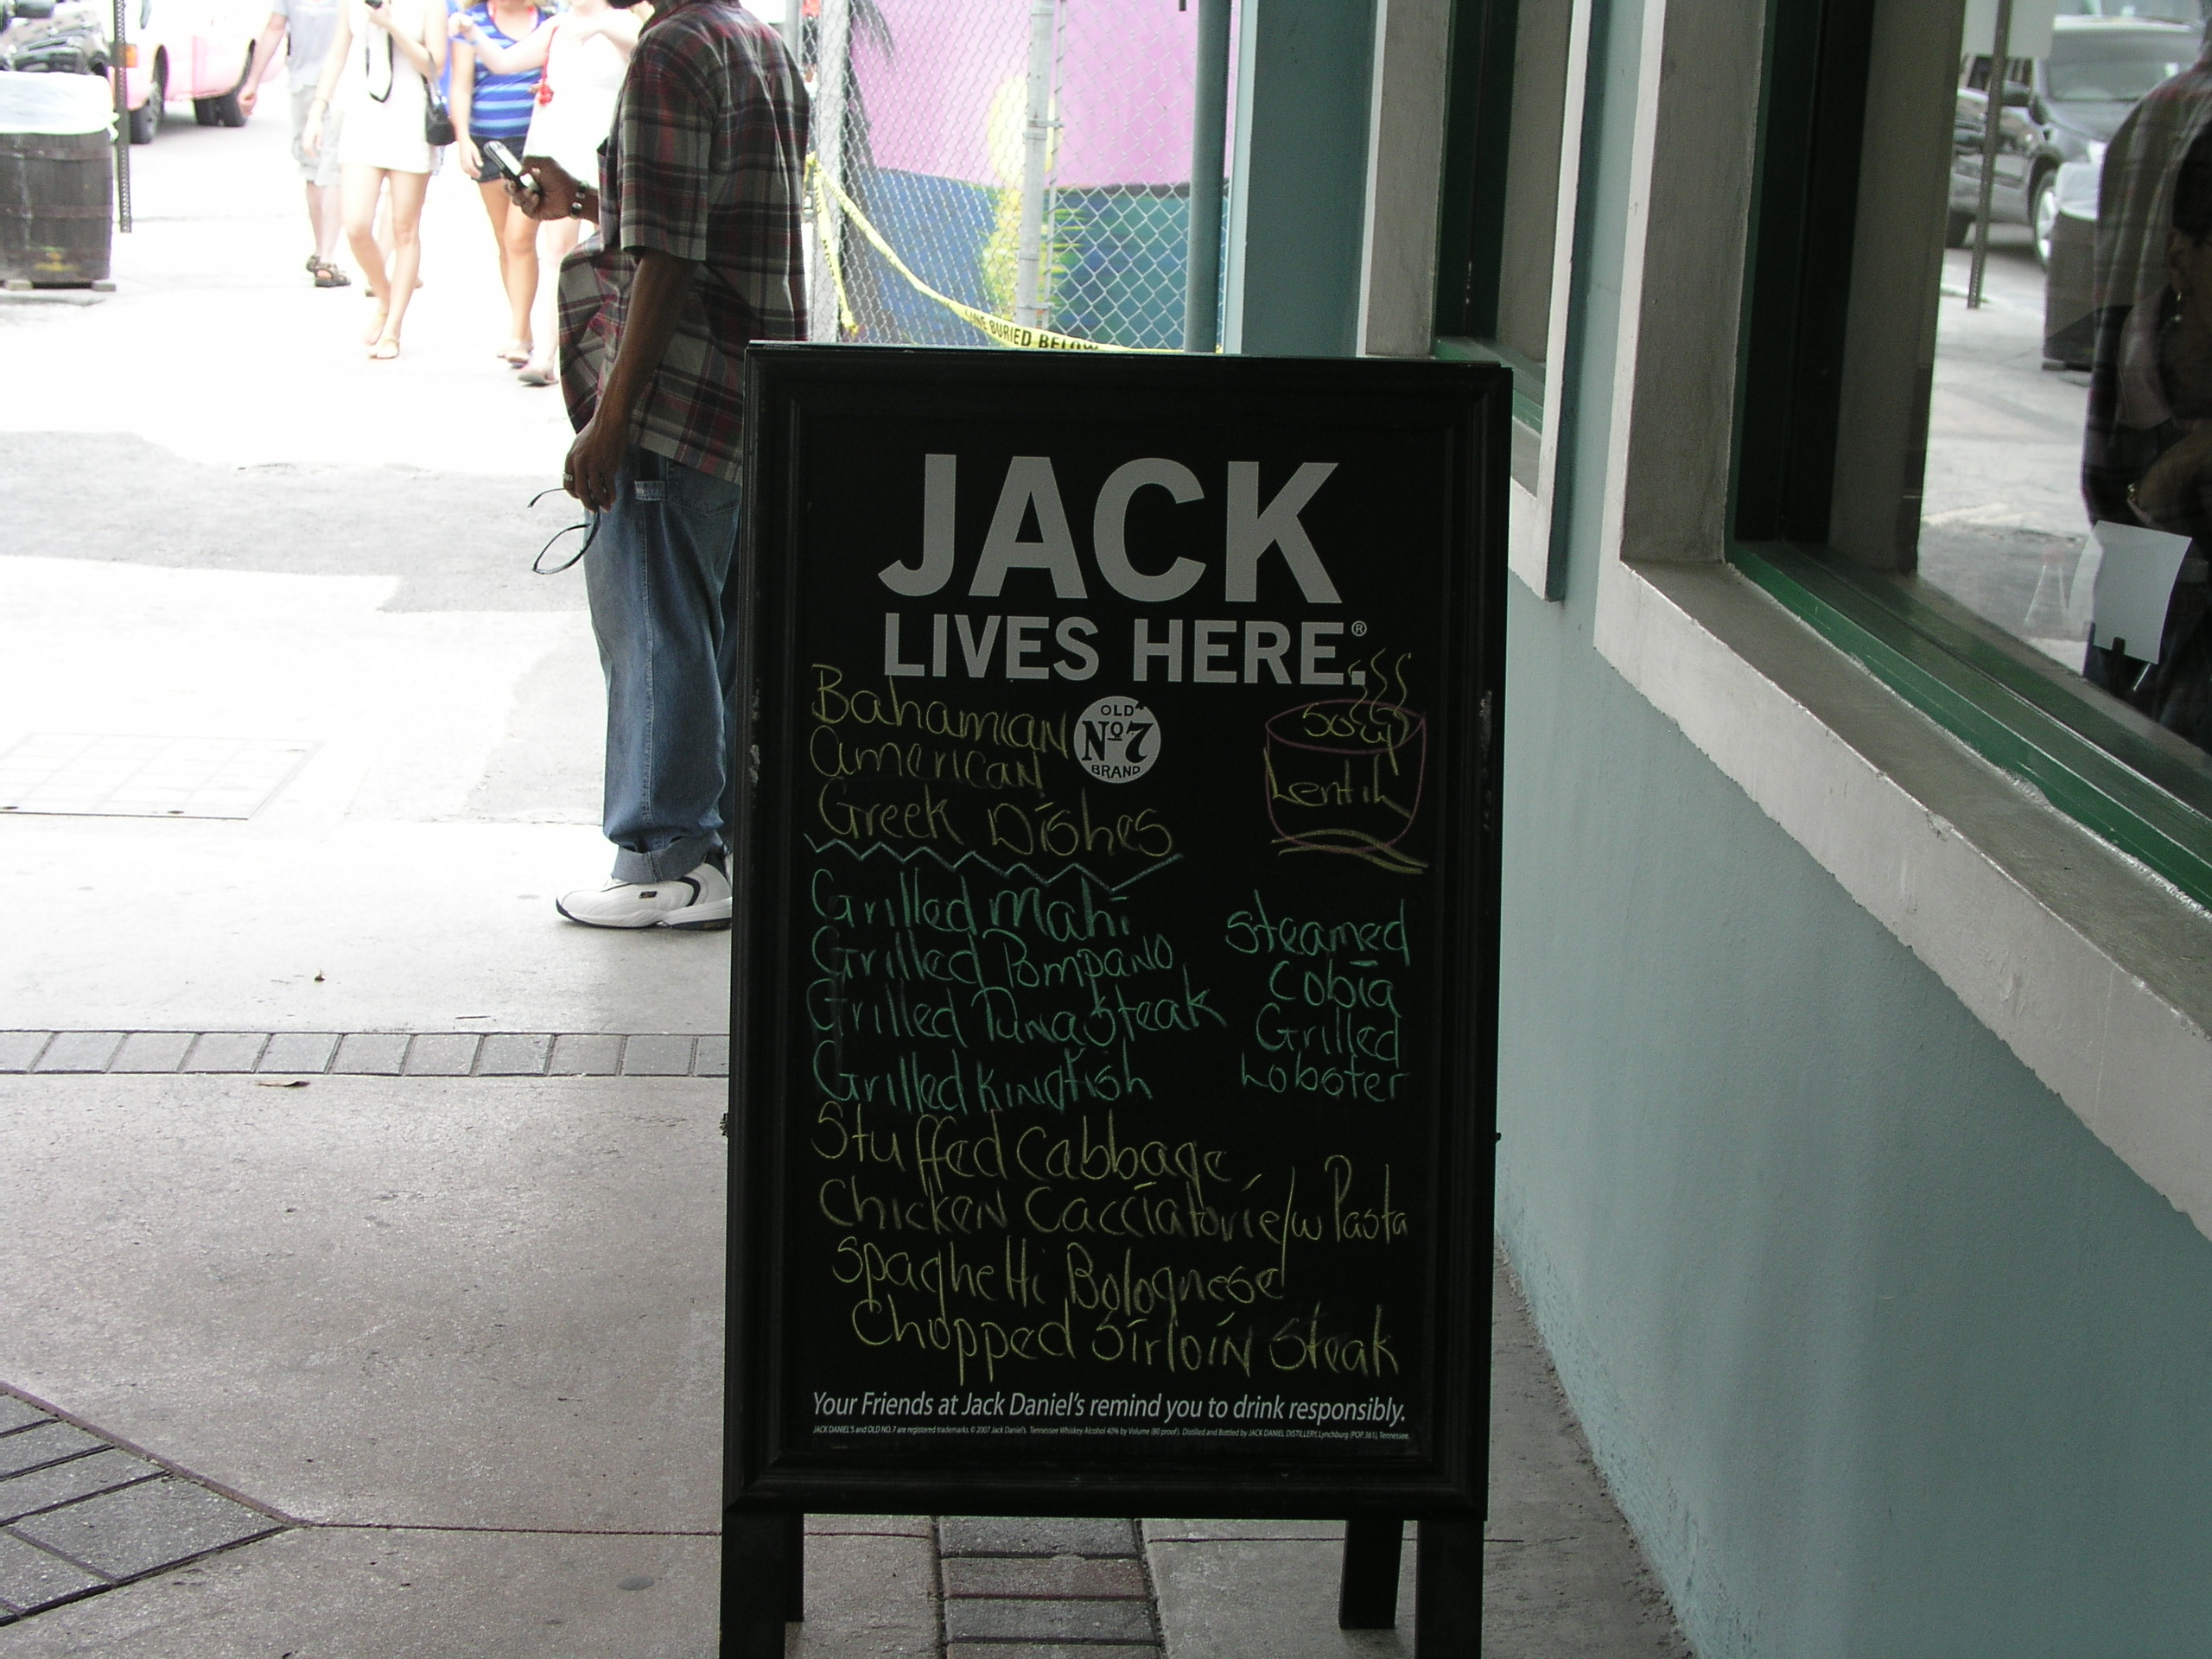 LINE BURIED BELOW
JACK
LIVES HERE.®
Bahamian
American
Greek Dishes
OLD
Nº7
BRAND
Soup
Lentil
Grilled Mahi
Grilled Pompano
Grilled Tuna Steak
Grilled Kingfish
Steamed
Cobia
Grilled
Lobster
Stuffed Cabbage
Chicken Cacciatorie/w Pasta
Spaghetti Bolognese
Chopped Sirloin Steak
Your Friends at Jack Daniel's remind you to drink responsibly.
JACK DANIEL'S and OLD NO. 7 are registered trademarks. © 2007 Jack Daniel's. Tennessee Whiskey Alcohol 40% by Volume (80 proof). Distilled and Bottled by JACK DANIEL DISTILLERY, Lynchburg (POP. 361), Tennessee.